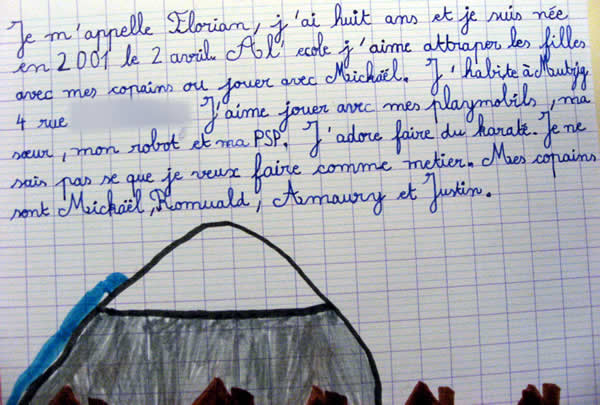 Je m'appelle Florian, j'ai huit ans et je suis née
en 2001 le 2 avril. A l'ecole j'aime attraper les filles
avec mes copains ou jouer avec Mickaël. J'habite à
4 rue J'aime jouer avec mes playmobils, ma
sœur, mon robot et ma PSP. J'adore faire du karaté. Je ne
sais pas se que je veux faire comme metier. Mes copains
sont Mickaël, Romuald, Amaury et Justin.